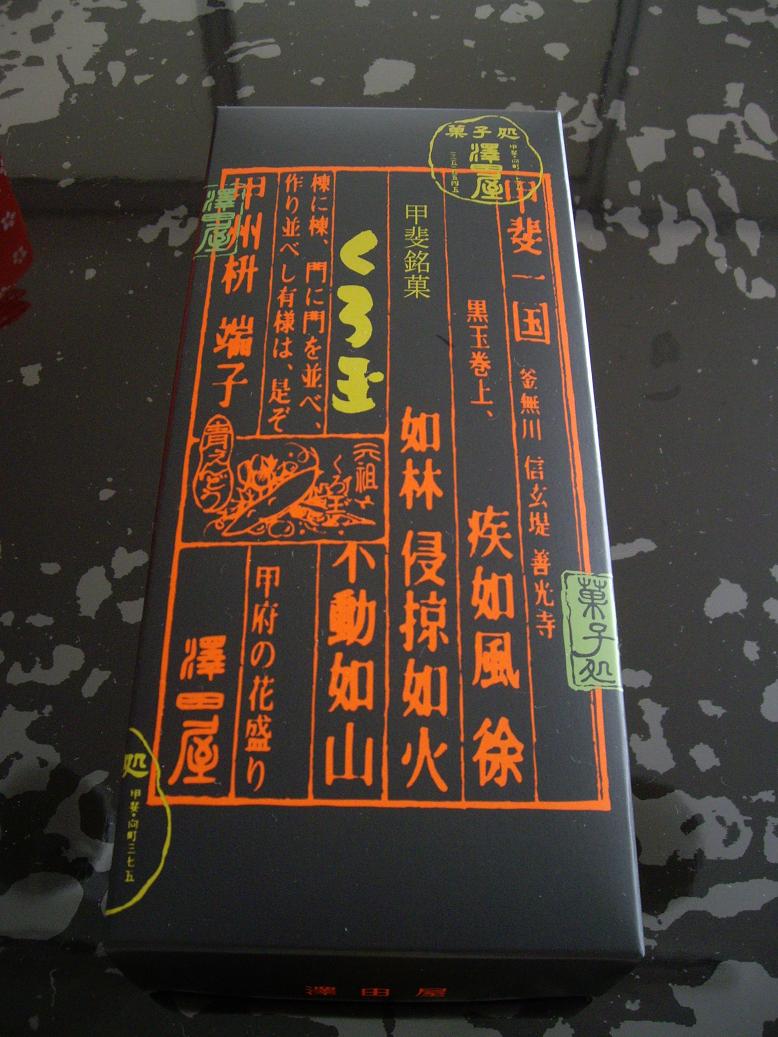 菓子処
澤田屋
甲斐一国
釜無川 信玄堤 善光寺
黒玉巻上、
疾如風 徐
甲斐銘菓
如林 侵掠如火
くろ玉
不動如山
棟に棟、門に門を並べ、
作り並べし有様は、是ぞ
元祖
くろ玉
青えんどう
甲府の花盛り
甲州枡 端子
澤田屋
澤田屋
菓子処
処
甲斐・向町三七五
澤田屋